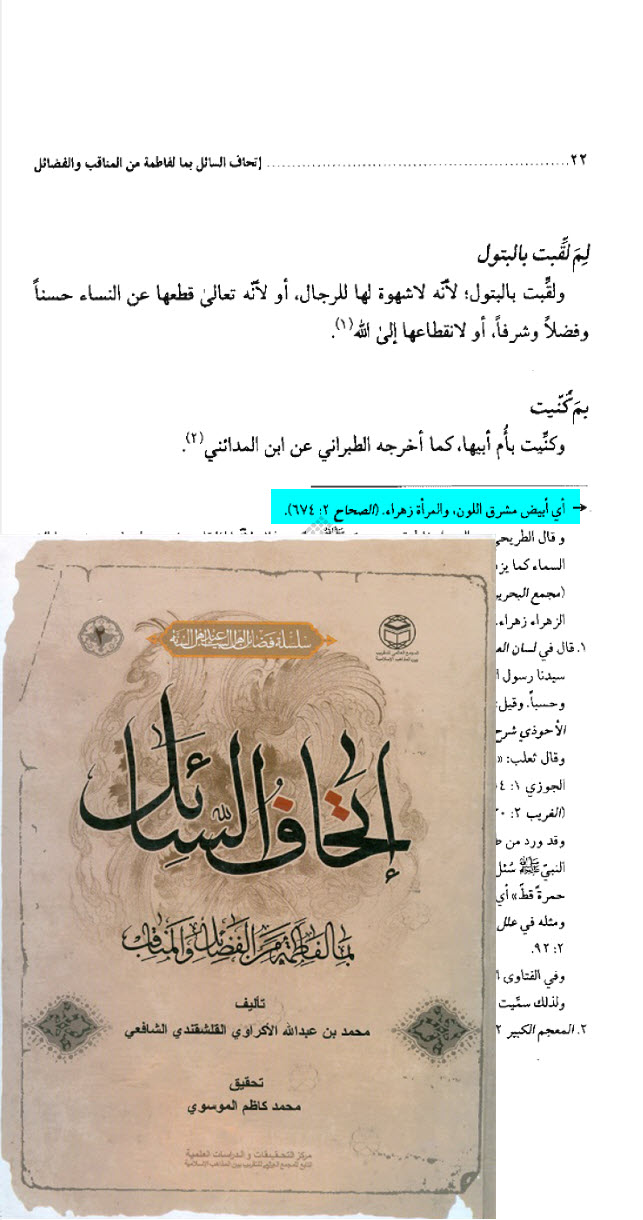 ٢٢ .......................................................... إتحاف السائل بما لفاطمة من المناقب والفضائل
لِمَ لقِّبت بالبتول
ولقِّبت بالبتول؛ لأنّه لاشهوة لها للرجال، أو لأنّه تعالىٰ قطعها عن النساء حسناً
وفضلاً وشرفاً، أو لانقطاعها إلىٰ الله(١).
بمَ كُنّيت
وكنِّيت بأُم أبيها، كما أخرجه الطبراني عن ابن المدائني(٢).
أي أبيض مشرق اللون، والمرأة زهراء. (الصحاح ٢: ٦٧٤).
و قال الطريحي
السماء كما يز
(مجمع البحرين
الزهراء زهراء.
١. قال في لسان الع
سيدنا رسول ا
وحسباً. وقيل:
الأحوذي شرح
وقال ثعلب: «
الجوزي ١: ٥٤
(الغريب ٢: ٣٠
وقد ورد من ط
النبيّ ﷺ سُئل
حمرةً قطّ» أي
ومثله في علل
٢: ٩٢.
وفي الفتاوى ا
ولذلك سمّيت
٢. المعجم الكبير ٢
٢
سلسلة فضائل أهل البيت عند أهل السنة
المجمع العالمي للتقريب
بين المذاهب الإسلامية
إتحاف السائل
بما لفاطمة من الفضائل والمناقب
تأليف
محمد بن عبدالله الأكراوي القلشقندي الشافعي
تحقيق
محمد كاظم الموسوي
مركز التحقيقات و الدراسات العلمية
التابع للمجمع العالمي للتقريب بين المذاهب الإسلامية